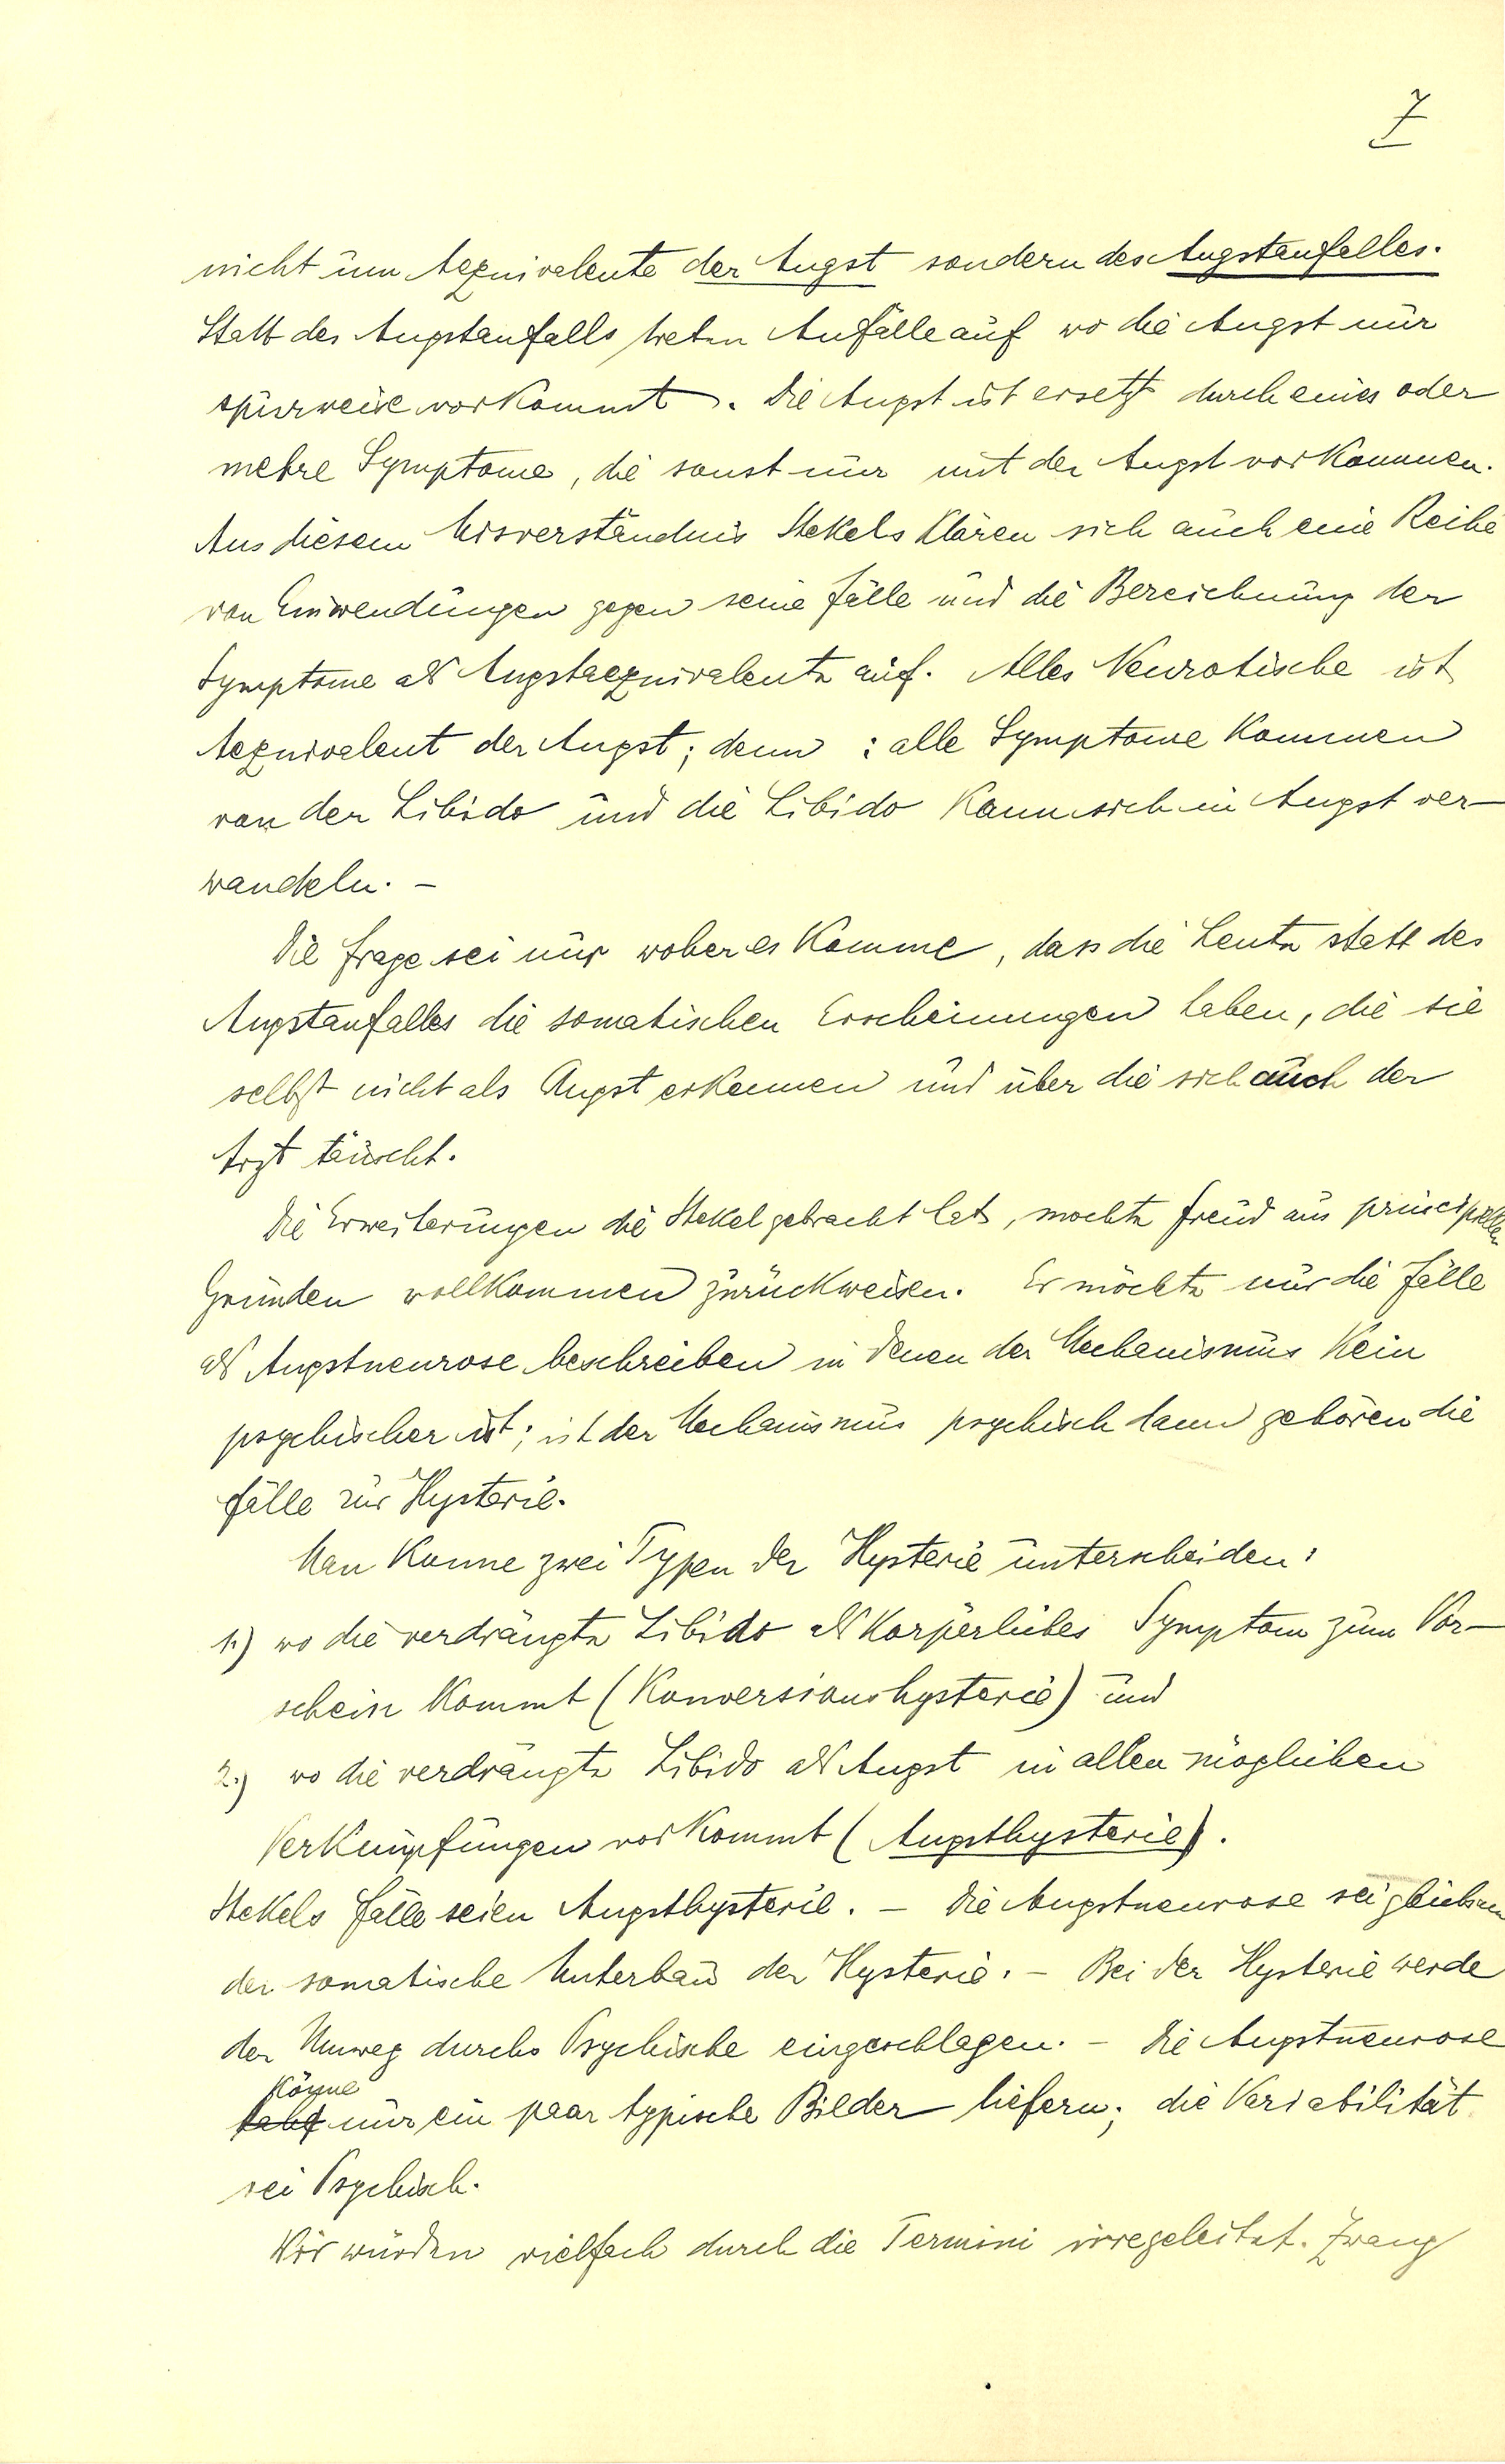 7
nicht um Aequivalente der Angst sondern des Angstanfalles.
Statt des Angstanfalls treten Anfälle auf wo die Angst nur
spurweise vorkommt. Die Angst ist ersetzt durch eines oder
mehre Symptome, die sonst nur mit der Angst vorkommen.
Aus diesem Misverständnis Stekels klären sich auch eine Reihe
von Einwendungen gegen seine Fälle und die Bezeichnung der
Symptome als Angstaequivalente auf. Alles Neurotische ist
Aequivalent der Angst; denn : alle Symptome kommen
von der Libido und die Libido kann sich in Angst ver-
wandeln. –
Die Frage sei nur woher es komme, dass die Leute statt des
Angstanfalles die somatischen Erscheinungen haben, die sie
selbst nicht als Angst erkennen und über die sich auch der
Arzt täuscht.
Die Erweiterungen die Stekel gebracht hat, mochte Freud aus principiellen
Gründen vollkommen zurückweisen. Er möchte nur die Fälle
als Angstneurose beschreiben in denen der Mechanismus kein
psychischer ist; ist der Mechanismus psychisch dann gehören die
Fälle zur Hysterie.
Man konne zwei Typen der Hysterie unterscheiden:
1.) wo die verdrängte Libido als körperliches Symptom zum Vor-
schein kommt (Konversionshysterie) und
2.) wo die verdrängte Libido als Angst in allen möglichen
Verknüpfungen vorkommt (Angsthysterie).
Stekels Fälle seien Angsthysterie. – Die Angstneurose sei gleichsam
der somatische Unterbau der Hysterie. – Bei der Hysterie werde
der Umweg durchs Psychische eingeschlagen. – Die Angstneurose
könne
nur ein paar typische Bilder liefern; die Variabilität
sei Psychisch.
Wir würden vielfach durch die Termini irregeleitet. Zwang